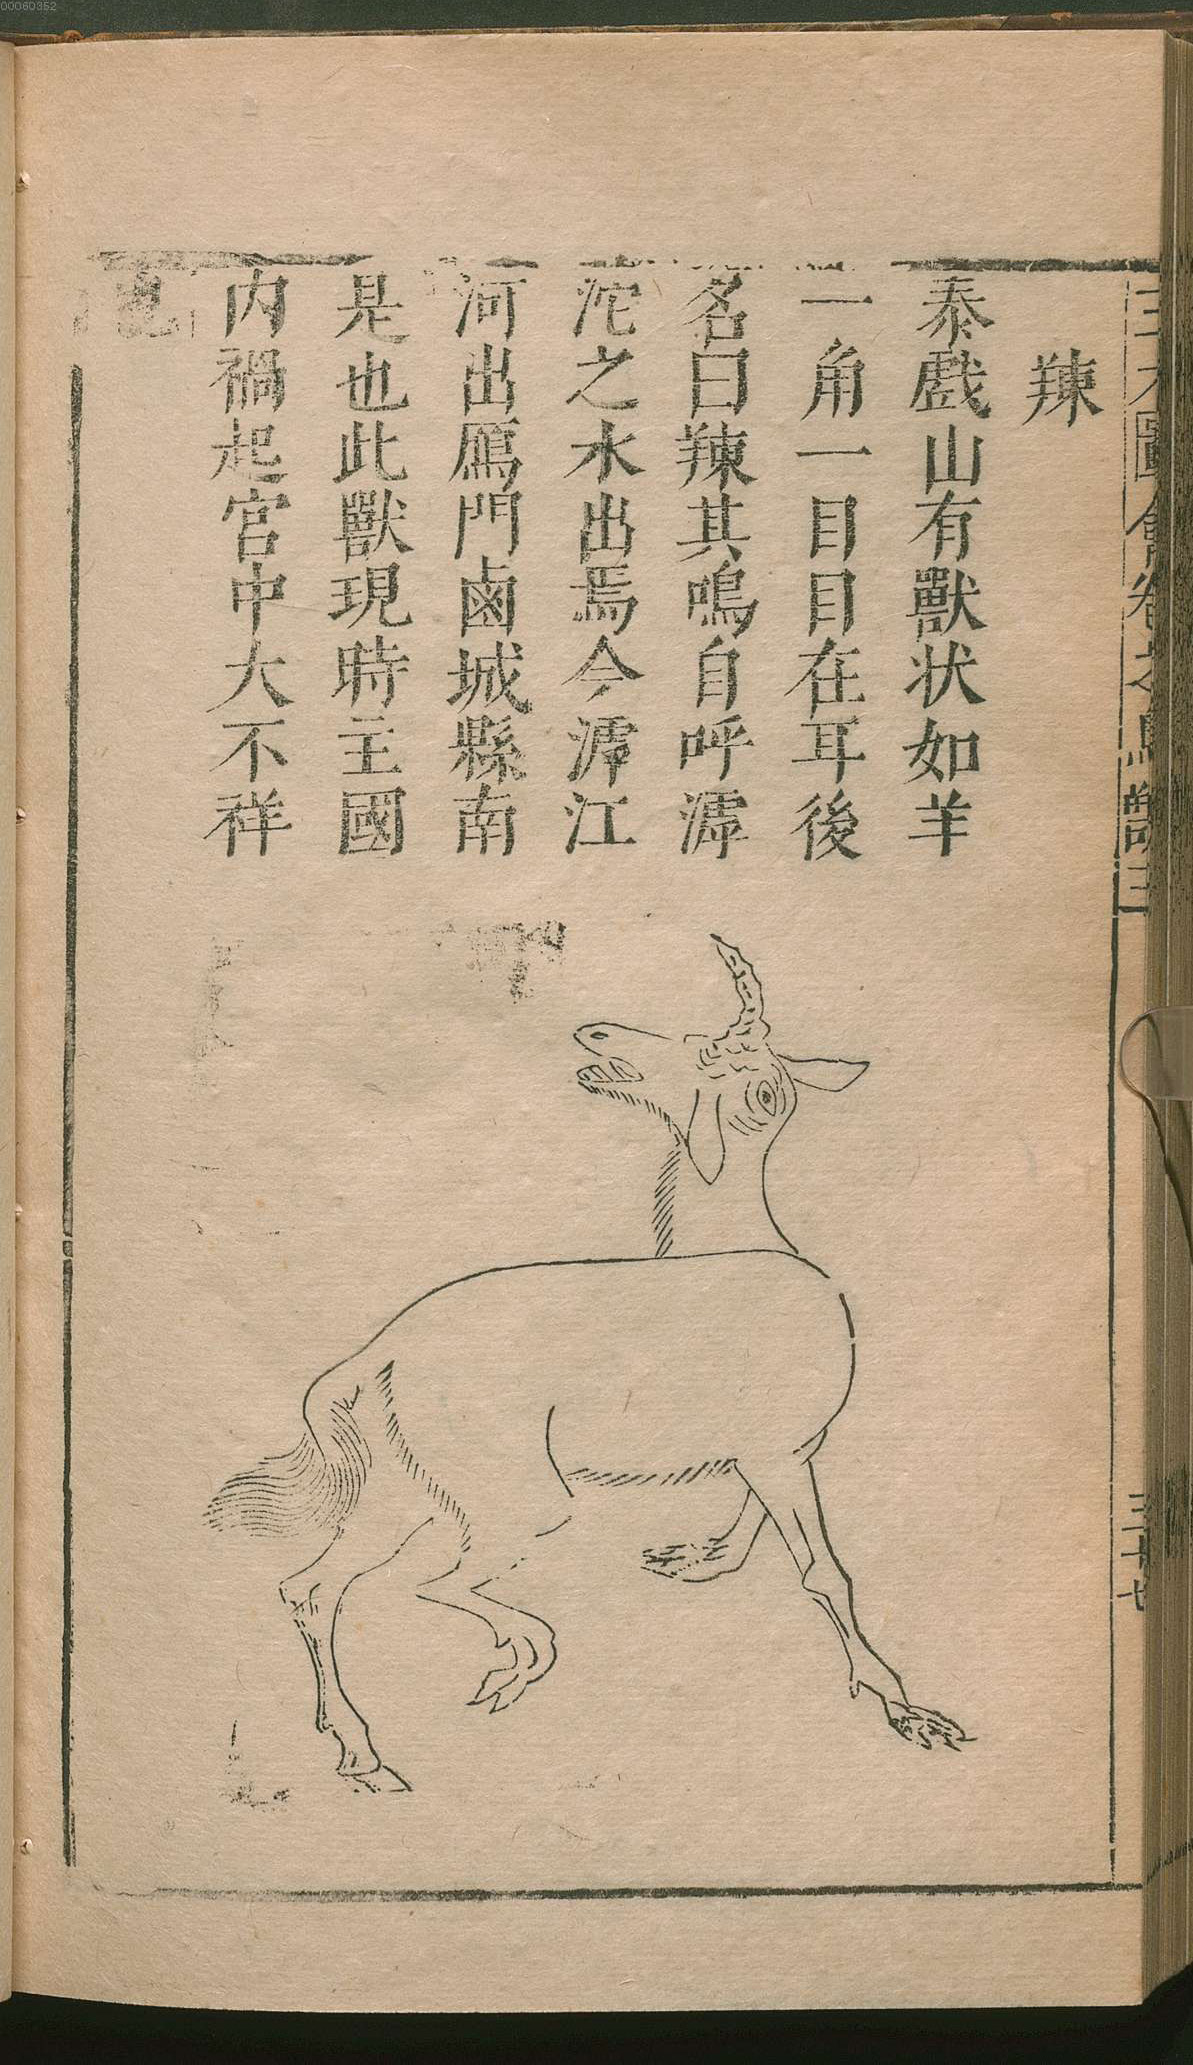 00060352
三才圖會卷之鳥獸三
三十七
䍶
泰戲山有獸狀如羊
一角一目目在耳後
名曰䍶其鳴自呼滹
沱之水出焉今滹江
河出鴈門鹵城縣南
是也此獸現時主國
内禍起宮中大不祥
也